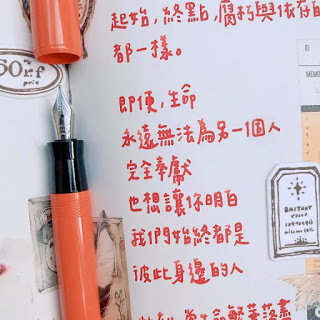 起始,終點,腐朽與依存的
都一樣。
即便,生命
永遠無法為另一個人
完全奉獻
也想讓你明白
我們始終都是
彼此身邊的人
生命繁華落盡
50rf
prix
MEMO